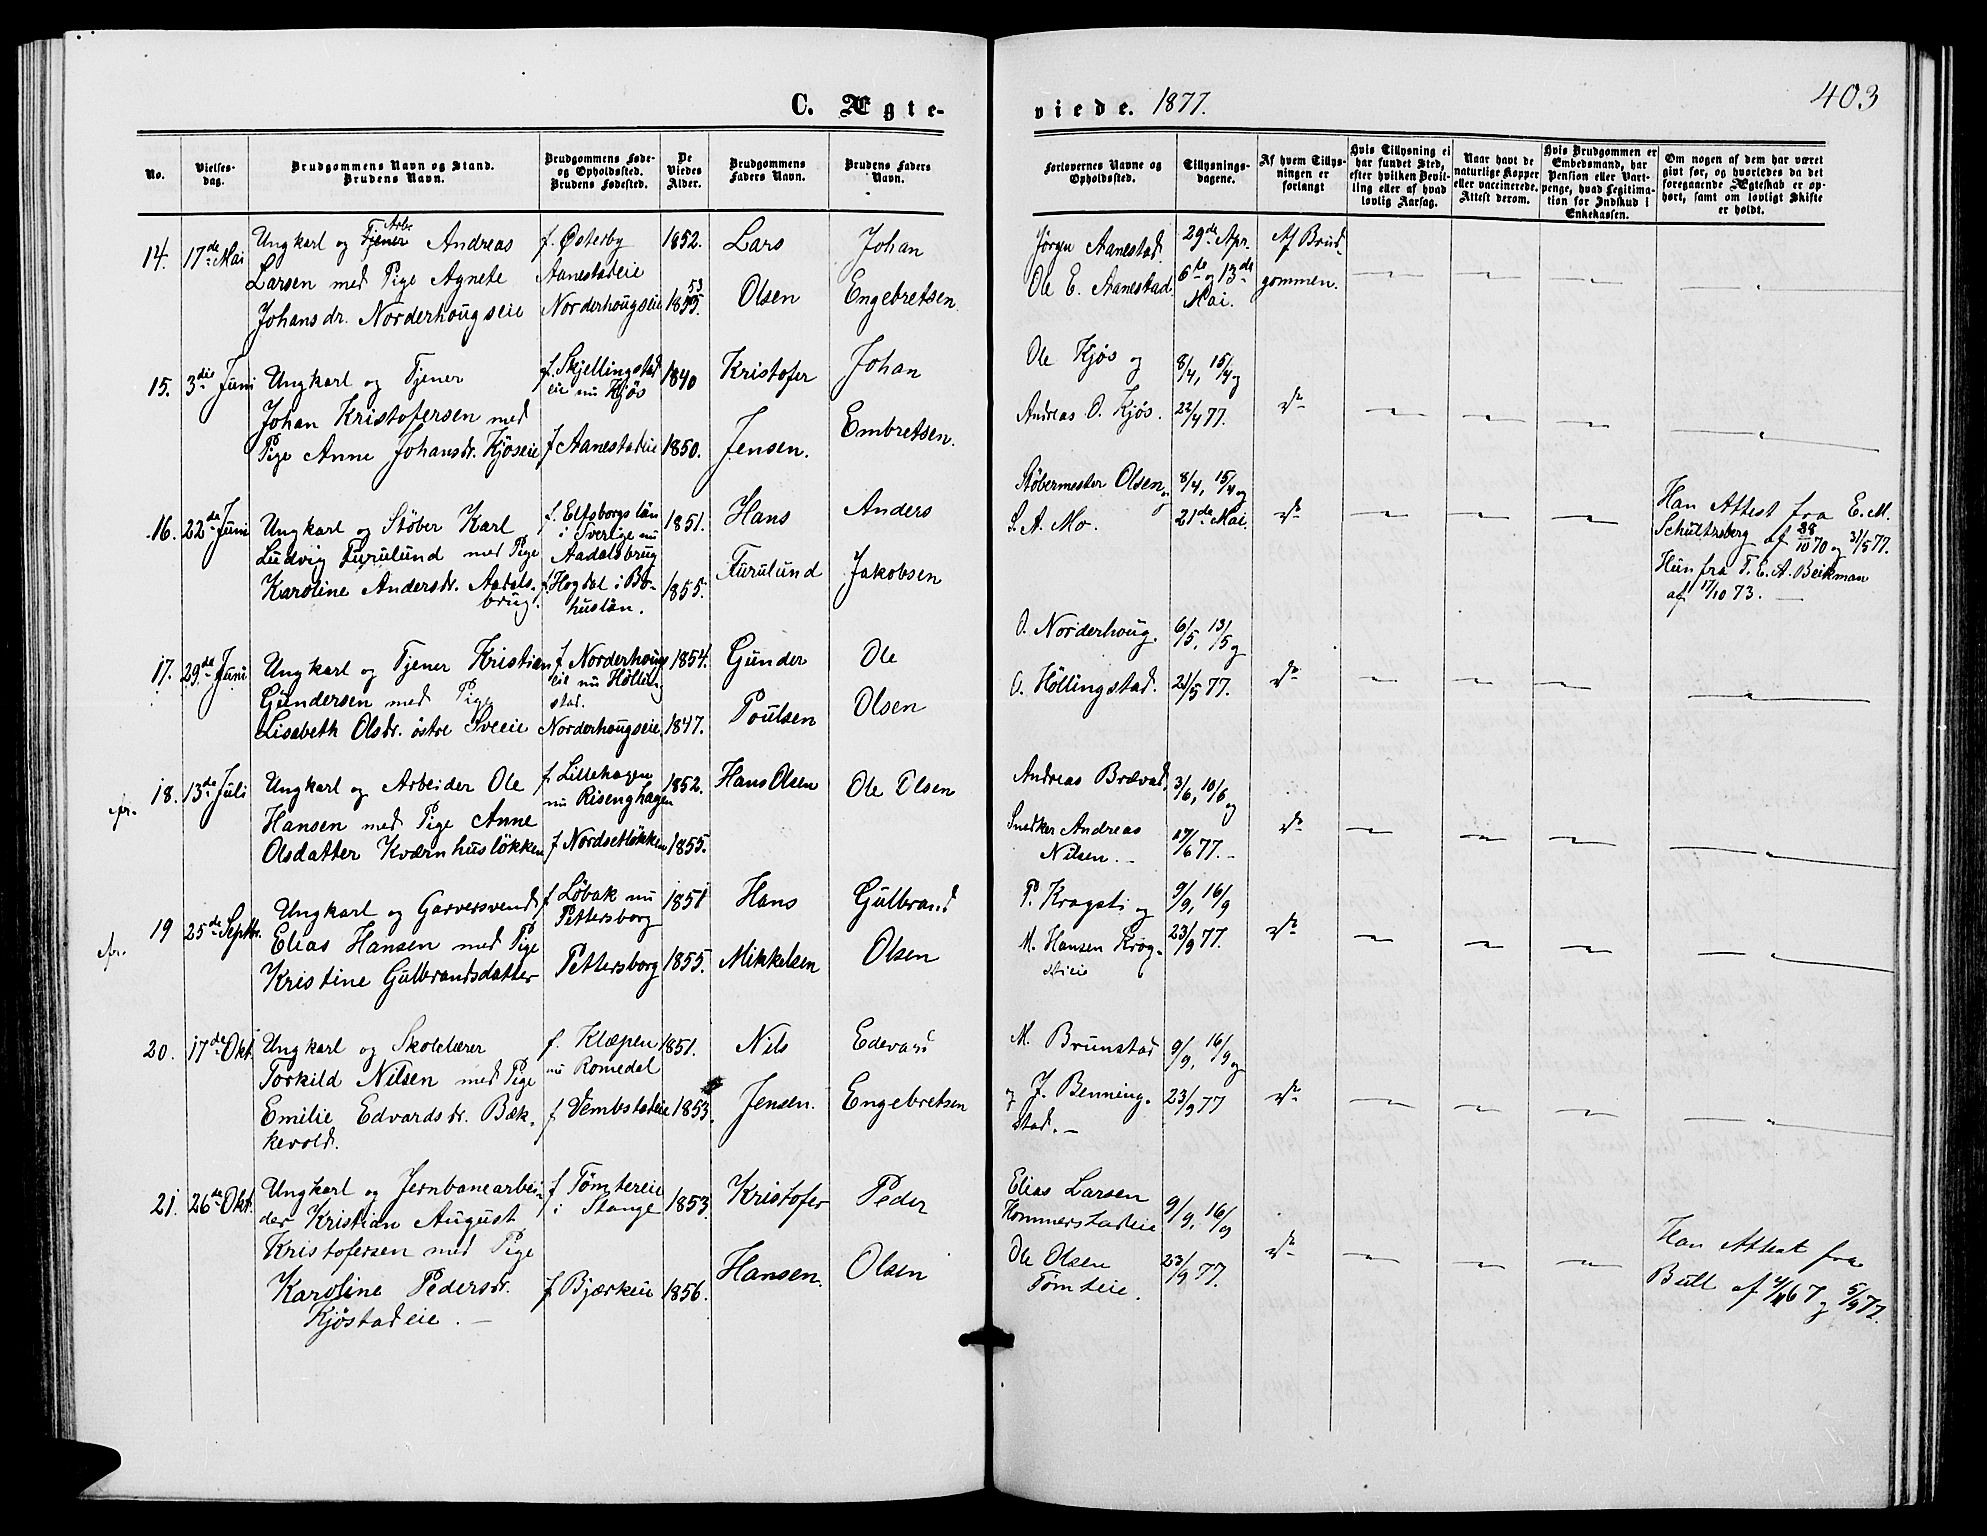 403
C. Ægte-
viede. 1877.
No.
Vielses-
dag.
Brudgommens Navn og Stand.
Brudens Navn.
Brudgommens Føde-
og Opholdssted.
Brudens Fødested.
De
Viedes
Alder.
Brudgommens
Faders Navn.
Brudens Faders
Navn.
Forlovernes Navne og
Opholdssted.
Tillysnings-
dagene.
Af hvem Tillys-
ningen er
forlangt
Hvis Tillysning ei
har fundet Sted,
efter hvilken Bevil-
ling eller af hvad
lovlig Aarsag.
Naar havt de
naturlige Kopper
eller vaccinerede.
Attest derom.
Hvis Brudgommen er
Embedsmand, har
Pension eller Vart-
penge, hvad Legitima-
tion for Indskud i
Enkekassen.
Om nogen af dem har været
gift før, og hvorledes da det
foregaaende Ægteskab er op-
hørt, samt om lovligt Skifte
er holdt.
14. 17de Mai
Ungkarl og Tjener Arbr. Andreas
Larsen med Pige Agnete
Johansdr. Norderhougseie
f. Østerby
Aanestadeie
Norderhougseie
1852.
1855. 53
Lars
Olsen
Johan
Engebretsen.
Jørgen Aanestad.
Ole E. Aanestad.
29de Apr.
6te og 13de
Mai.
Af Brud-
gommen.
15. 3die Juni
Ungkarl og Tjener
Johan Kristofersen med
Pige Anne Johansdr. Kjøseie
f. Skjellingstad
eie nu Kjøs
f Aanestadeie
1840
1850.
Kristofer
Jensen.
Johan
Embretsen.
Ole Kjøs og
Andreas O. Kjøs.
8/4, 15/4 og
22/4 77.
do
16. 22de Juni
Ungkarl og Støber Karl
Ludvig Furulund med Pige
Karoline Andersdr. Aadals-
brug.
f. Elfsborgs län
i Sverige nu
Aadalsbrug
f. Hogdal i Bo-
huslän.
1851.
1855.
Hans
Furulund
Anders
Jakobsen
Støbermester Olsen og
S. A. Mo.
8/4, 15/4 og
21de Mai.
do
Han Attest fra E. M.
Schultzberg af 28/10 70 og 31/5 77.
Hun fra T. E. A. Beikman
af 17/10 73.
17. 29de Juni
Ungkarl og Tjener Kristian
Gundersen med Pige
Lisabeth Olsdr. østre Sveeie
f. Norderhougs
eie nu Hølling
stad.
Norderhougseie
1854.
1847.
Gunder
Poulsen
Ole
Olsen
O. Norderhoug.
O. Høllingstad.
6/5, 13/5 og
21/5 77.
do
18. 13de Juli
Ungkarl og Arbeider Ole
Hansen med Pige Anne
Olsdatter Kværnhusløkken
f. Lillehagen
nu Risenghagen
f Nordsetløkken
1852.
1855.
Hans Olsen
Ole Olsen
Andreas Brævad,
Snedker Andreas
Nilsen.
3/6, 10/6 og
17/6 77.
do
19 25de Septbr.
Ungkarl og Garversvend
Elias Hansen med Pige
Kristine Gulbrandsdatter
f Løbak nu
Pettersborg
Pettersborg
1851
1855.
Hans
Mikkelsen
Gulbrand
Olsen
P. Kragsti og
M. Hansen Krog-
stieie
9/9, 16/9
23/9 77.
do
20. 17de Okt.
Ungkarl og Skolelærer
Torkild Nilsen med Pige
Emilie Edvardsdr. Bæk-
kevold.
f. Klæpen
nu Romedal
f Vembstadeie
1851.
1853.
Nils
Jensen.
Edevard
Engebretsen
M. Brunstad
og J. Benning-
stad.
9/9, 16/9 og
23/9 77
do
21. 26de Okt.
Ungkarl og Jernbanearbei-
der Kristian August
Kristofersen med Pige
Karoline Pedersdr.
Kjøstadeie.
f Tømtereie
i Stange
f Bjærkeie
1853.
1856.
Kristofer
Hansen.
Peder
Olsen
Elias Larsen
Hommerstadeie
Ole Olsen
Tømteie.
9/9, 16/9
23/9 77.
do
Han Attest fra
Bull af 67 og 5/9 77.